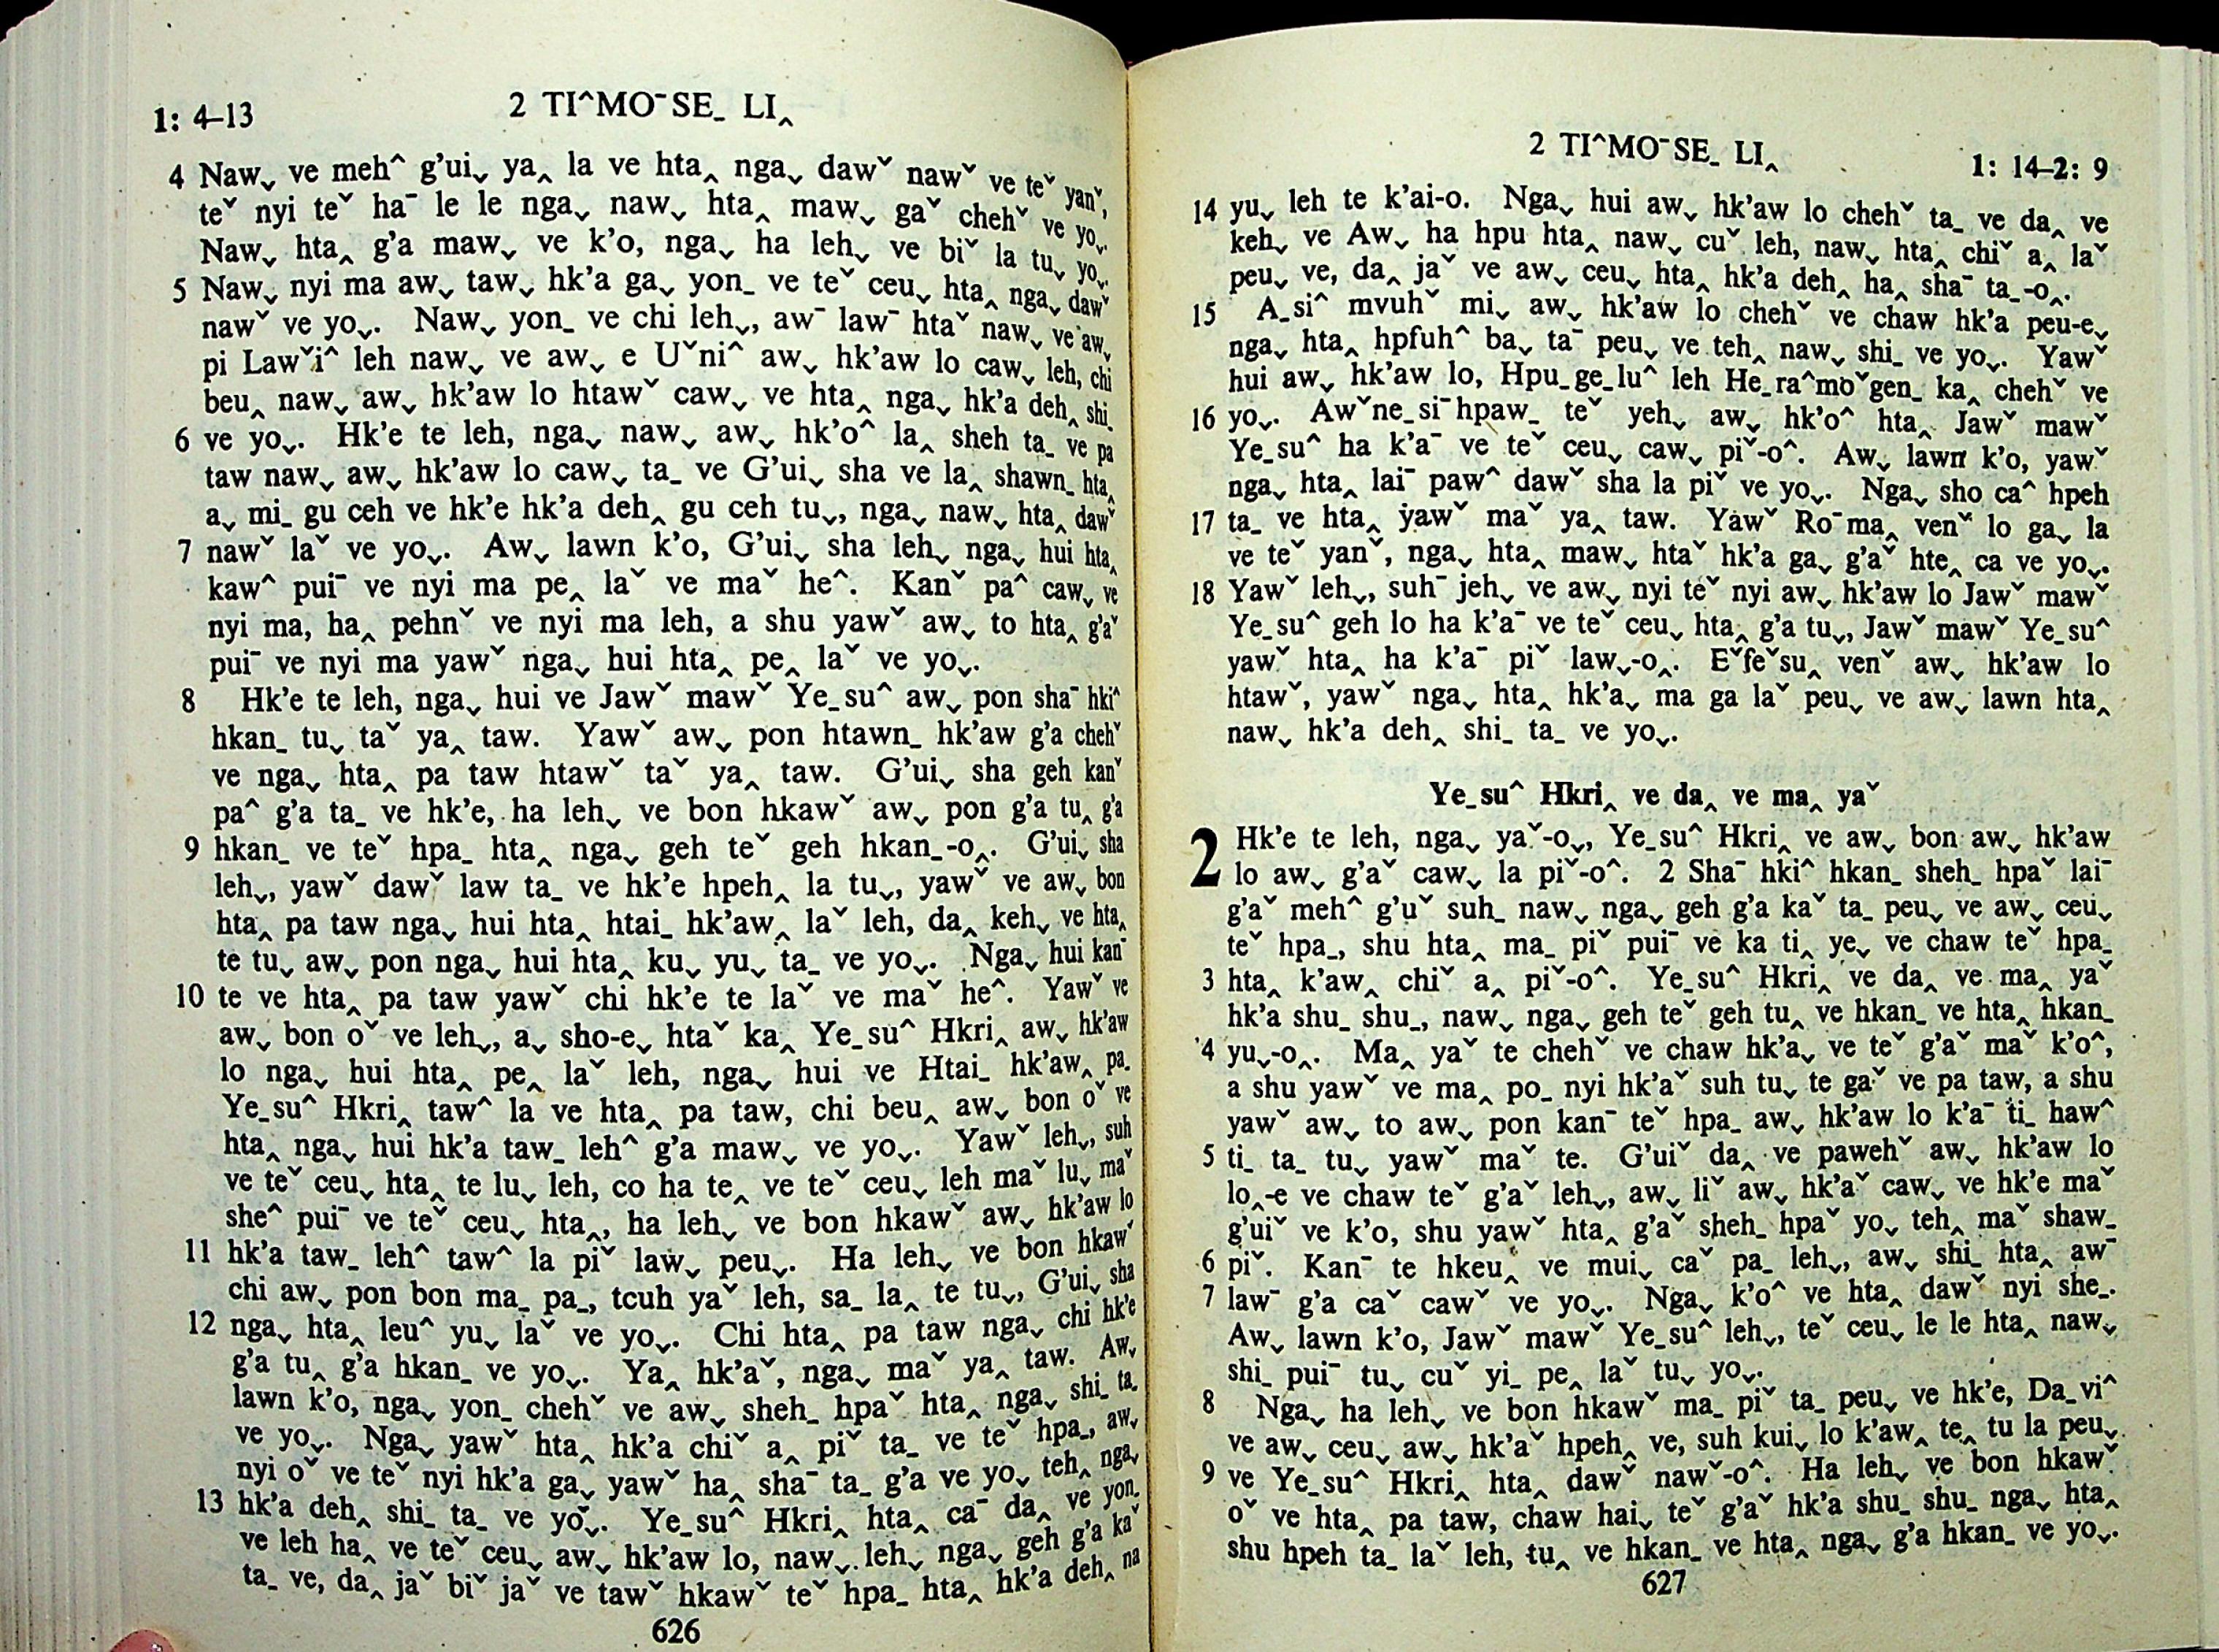 1: 4–13
2 TI^MOˉSE_ LI‸
4 Nawˬ ve meh^ g’uiˬ ya‸ la ve hta‸ ngaˬ dawˇ nawˇ ve teˇ yanˇ,
teˇ nyi teˇ haˉ le le ngaˬ nawˬ hta‸ mawˬ gaˇ chehˇ ve yoˬ.
Nawˬ hta‸ g’a mawˬ ve k’o, ngaˬ ha lehˬ ve biˇ la tuˬ yoˬ.
5 Nawˬ nyi ma awˬ tawˬ hk’a gaˬ yon_ ve teˇ ceuˬ hta‸ ngaˬ dawˇ
nawˇ ve yoˬ. Nawˬ yon_ ve chi lehˬ, awˉ lawˉ htaˇ nawˬ ve awˬ
pi Lawˇi^ leh nawˬ ve awˬ e Uˇni^ awˬ hk’aw lo cawˬ leh, chi
beu‸ nawˬ awˬ hk’aw lo htawˇ cawˬ ve hta‸ ngaˬ hk’a deh‸ shi_
6 ve yoˬ. Hk’e te leh, ngaˬ nawˬ awˬ hk’o^ la‸ sheh ta_ ve pa
taw nawˬ awˬ hk’aw lo cawˬ ta_ ve G’uiˬ sha ve la‸ shawn_ hta‸
aˬ mi_ gu ceh ve hk’e hk’a deh‸ gu ceh tuˬ, ngaˬ nawˬ hta‸ dawˇ
7 nawˇ laˇ ve yoˬ. Awˬ lawn k’o, G’uiˬ sha lehˬ ngaˬ hui hta‸
kaw^ puiˉ ve nyi ma pe‸ laˇ ve maˇ he^. Kanˇ pa^ cawˬ ve
nyi ma, ha‸ pehnˇ ve nyi ma leh, a shu yawˇ awˬ to hta‸ g’aˇ
puiˉ ve nyi ma yawˇ ngaˬ hui hta‸ pe‸ laˇ ve yoˬ.
8 Hk’e te leh, ngaˬ hui ve Jawˇ mawˇ Ye_su^ awˬ pon shaˉ hki^
hkan_ tuˬ taˇ ya‸ taw. Yawˇ awˬ pon htawn_ hk’aw g’a chehˇ
ve ngaˬ hta‸ pa taw htawˇ taˇ ya‸ taw. G’uiˬ sha geh kanˇ
pa^ g’a ta_ ve hk’e, ha lehˬ ve bon hkawˇ awˬ pon g’a tu‸ g’a
9 hkan_ ve teˇ hpa_ hta‸ ngaˬ geh teˇ geh hkan_-o‸. G’uiˬ sha
lehˬ, yawˇ dawˇ law ta_ ve hk’e hpeh‸ la tuˬ, yawˇ ve awˬ bon
hta‸ pa taw ngaˬ hui hta‸ htai_ hk’aw‸ laˇ leh, da‸ kehˬ ve hta‸
te tuˬ awˬ pon ngaˬ hui hta‸ kuˬ yuˬ ta_ ve yoˬ. Ngaˬ hui kanˉ
10 te ve hta‸ pa taw yawˇ chi hk’e te laˇ ve maˇ he^. Yawˇ ve
awˬ bon oˇ ve lehˬ, aˬ sho-eˬ htaˇ ka‸ Ye_su^ Hkri‸ awˬ hk’aw
lo ngaˬ hui hta‸ pe‸ laˇ leh, ngaˬ hui ve Htai_ hk’aw‸ pa_
Ye_su^ Hkri‸ taw^ la ve hta‸ pa taw, chi beu‸ awˬ bon oˇ ve
hta‸ ngaˬ hui hk’a taw_ leh^ g’a mawˬ ve yoˬ. Yawˇ lehˬ, suh
ve teˇ ceuˬ hta‸ te luˬ leh, co ha te‸ ve teˇ ceuˬ leh maˇ luˬ maˇ
she^ puiˉ ve teˇ ceuˬ hta‸, ha lehˬ ve bon hkawˇ awˬ hk’aw lo
11 hk’a taw_ leh^ taw^ la piˇ lawˬ peuˬ. Ha lehˬ ve bon hkawˇ
chi awˬ pon bon ma_ pa_, tcuh yaˇ leh, sa_ la‸ te tuˬ, G’uiˬ sha
12 ngaˬ hta‸ leu^ yuˬ laˇ ve yoˬ. Chi hta‸ pa taw ngaˬ chi hk’e
g’a tu‸ g’a hkan_ ve yoˬ. Ya‸ hk’aˇ, ngaˬ maˇ ya‸ taw. Awˬ
lawn k’o, ngaˬ yon_ chehˇ ve awˬ sheh_ hpaˇ hta‸ ngaˬ shi_ ta_
ve yoˬ. Ngaˬ yawˇ hta‸ hk’a chiˇ a‸ piˇ ta_ ve teˇ hpa_, awˬ
nyi oˇ ve teˇ nyi hk’a gaˬ yawˇ ha‸ shaˉ ta_ g’a ve yoˬ teh‸ ngaˬ
13 hk’a deh‸ shi_ ta_ ve yoˬ. Ye_su^ Hkri‸ hta‸ caˉ da‸ ve yon_
ve leh ha‸ ve teˇ ceuˬ awˬ hk’aw lo, nawˬ lehˬ ngaˬ geh g’a kaˇ
ta_ ve, da‸ jaˇ biˇ jaˇ ve tawˇ hkawˇ teˇ hpa_ hta‸ hk’a deh‸ na
626
2 TI^MOˉSE_ LI‸
1: 14–2: 9
14 yuˬ leh te k’ai-o. Ngaˬ hui awˬ hk’aw lo chehˇ ta_ ve da‸ ve
kehˬ ve Awˬ ha hpu hta‸ nawˬ cuˇ leh, nawˬ hta‸ chiˇ a‸ laˇ
peuˬ ve, da‸ jaˇ ve awˬ ceuˬ hta‸ hk’a deh‸ ha‸ shaˉ ta_-o‸.
15 A_si^ mvuhˇ miˬ awˬ hk’aw lo chehˇ ve chaw hk’a peu-eˬ
ngaˬ hta‸ hpfuh^ baˬ taˉ peuˬ ve teh‸ nawˬ shi_ ve yoˬ. Yawˇ
hui awˬ hk’aw lo, Hpu_ge_lu^ leh He_ra^moˇgen_ ka‸ chehˇ ve
16 yoˬ. Awˇne_siˉhpaw_ teˇ yehˬ awˬ hk’o^ hta‸ Jawˇ mawˇ
Ye_su^ ha k’aˉ ve teˇ ceuˬ cawˬ piˇ-o^. Awˬ lawn k’o, yawˇ
ngaˬ hta‸ laiˉ paw^ dawˇ sha la piˇ ve yoˬ. Ngaˬ sho ca^ hpeh
17 ta_ ve hta‸ yawˇ maˇ ya‸ taw. Yawˇ Roˉma‸ venˇ lo gaˬ la
ve teˇ yanˇ, ngaˬ hta‸ mawˬ htaˇ hk’a gaˬ g’aˇ hte‸ ca ve yoˬ.
18 Yawˇ lehˬ, suhˉ jehˬ ve awˬ nyi teˇ nyi awˬ hk’aw lo Jawˇ mawˇ
Ye_su^ geh lo ha k’aˉ ve teˇ ceuˬ hta‸ g’a tuˬ, Jawˇ mawˇ Ye_su^
yawˇ hta‸ ha k’aˉ piˇ lawˬ-o‸. Eˇfeˇsu‸ venˇ awˬ hk’aw lo
htawˇ, yawˇ ngaˬ hta‸ hk’aˬ ma ga laˇ peuˬ ve awˬ lawn hta‸
nawˬ hk’a deh‸ shi_ ta_ ve yoˬ.
Ye_su^ Hkri‸ ve da‸ ve ma‸ yaˇ
2 Hk’e te leh, ngaˬ yaˇ-oˬ, Ye_su^ Hkri‸ ve awˬ bon awˬ hk’aw
lo awˬ g’aˇ cawˬ la piˇ-o^. 2 Shaˉ hki^ hkan_ sheh_ hpaˇ laiˉ
g’aˇ meh^ g’uˇ suh_ nawˬ ngaˬ geh g’a kaˇ ta_ peuˬ ve awˬ ceuˬ
teˇ hpa_, shu hta‸ ma_ piˇ puiˉ ve ka ti‸ yeˬ ve chaw teˇ hpa_
3 hta‸ k’aw‸ chiˇ a‸ piˇ-o^. Ye_su^ Hkri‸ ve da‸ ve ma‸ yaˇ
hk’a shu_ shu_, nawˬ ngaˬ geh teˇ geh tu‸ ve hkan_ ve hta‸ hkan_
4 yuˬ-o‸. Ma‸ yaˇ te chehˇ ve chaw hk’aˬ ve teˇ g’aˇ maˇ k’o^,
a shu yawˇ ve ma‸ po_ nyi hk’aˇ suh tuˬ te gaˇ ve pa taw, a shu
yawˇ awˬ to awˬ pon kanˉ teˇ hpa_ awˬ hk’aw lo k’aˉ ti_ haw^
5 ti_ ta_ tuˬ yawˇ maˇ te. G’uiˇ da‸ ve pawehˇ awˬ hk’aw lo
lo‸-e ve chaw teˇ g’aˇ lehˬ, awˬ liˇ awˬ hk’aˇ cawˬ ve hk’e maˇ
g’uiˇ ve k’o, shu yawˇ hta‸ g’aˇ sheh_ hpaˇ yoˬ teh‸ maˇ shaw_
6 piˇ. Kanˉ te hkeu‸ ve muiˬ caˇ pa_ lehˬ, awˬ shi_ hta‸ awˉ
7 lawˉ g’a caˇ cawˇ ve yoˬ. Ngaˬ k’o^ ve hta‸ dawˇ nyi she_.
Awˬ lawn k’o, Jawˇ mawˇ Ye_su^ lehˬ, teˇ ceuˬ le le hta‸ nawˬ
shi_ puiˉ tuˬ cuˇ yi_ pe‸ laˇ tuˬ yoˬ.
8 Ngaˬ ha lehˬ ve bon hkawˇ ma_ piˇ ta_ peuˬ ve hk’e, Da_vi^
ve awˬ ceuˬ awˬ hk’aˇ hpeh‸ ve, suh kuiˬ lo k’aw‸ te‸ tu la peuˬ
9 ve Ye_su^ Hkri‸ hta‸ dawˇ nawˇ-o^. Ha lehˬ ve bon hkawˇ
oˇ ve hta‸ pa taw, chaw haiˬ teˇ g’aˇ hk’a shu_ shu_ ngaˬ hta‸
shu hpeh ta_ laˇ leh, tu‸ ve hkan_ ve hta‸ ngaˬ g’a hkan_ ve yoˬ.
627